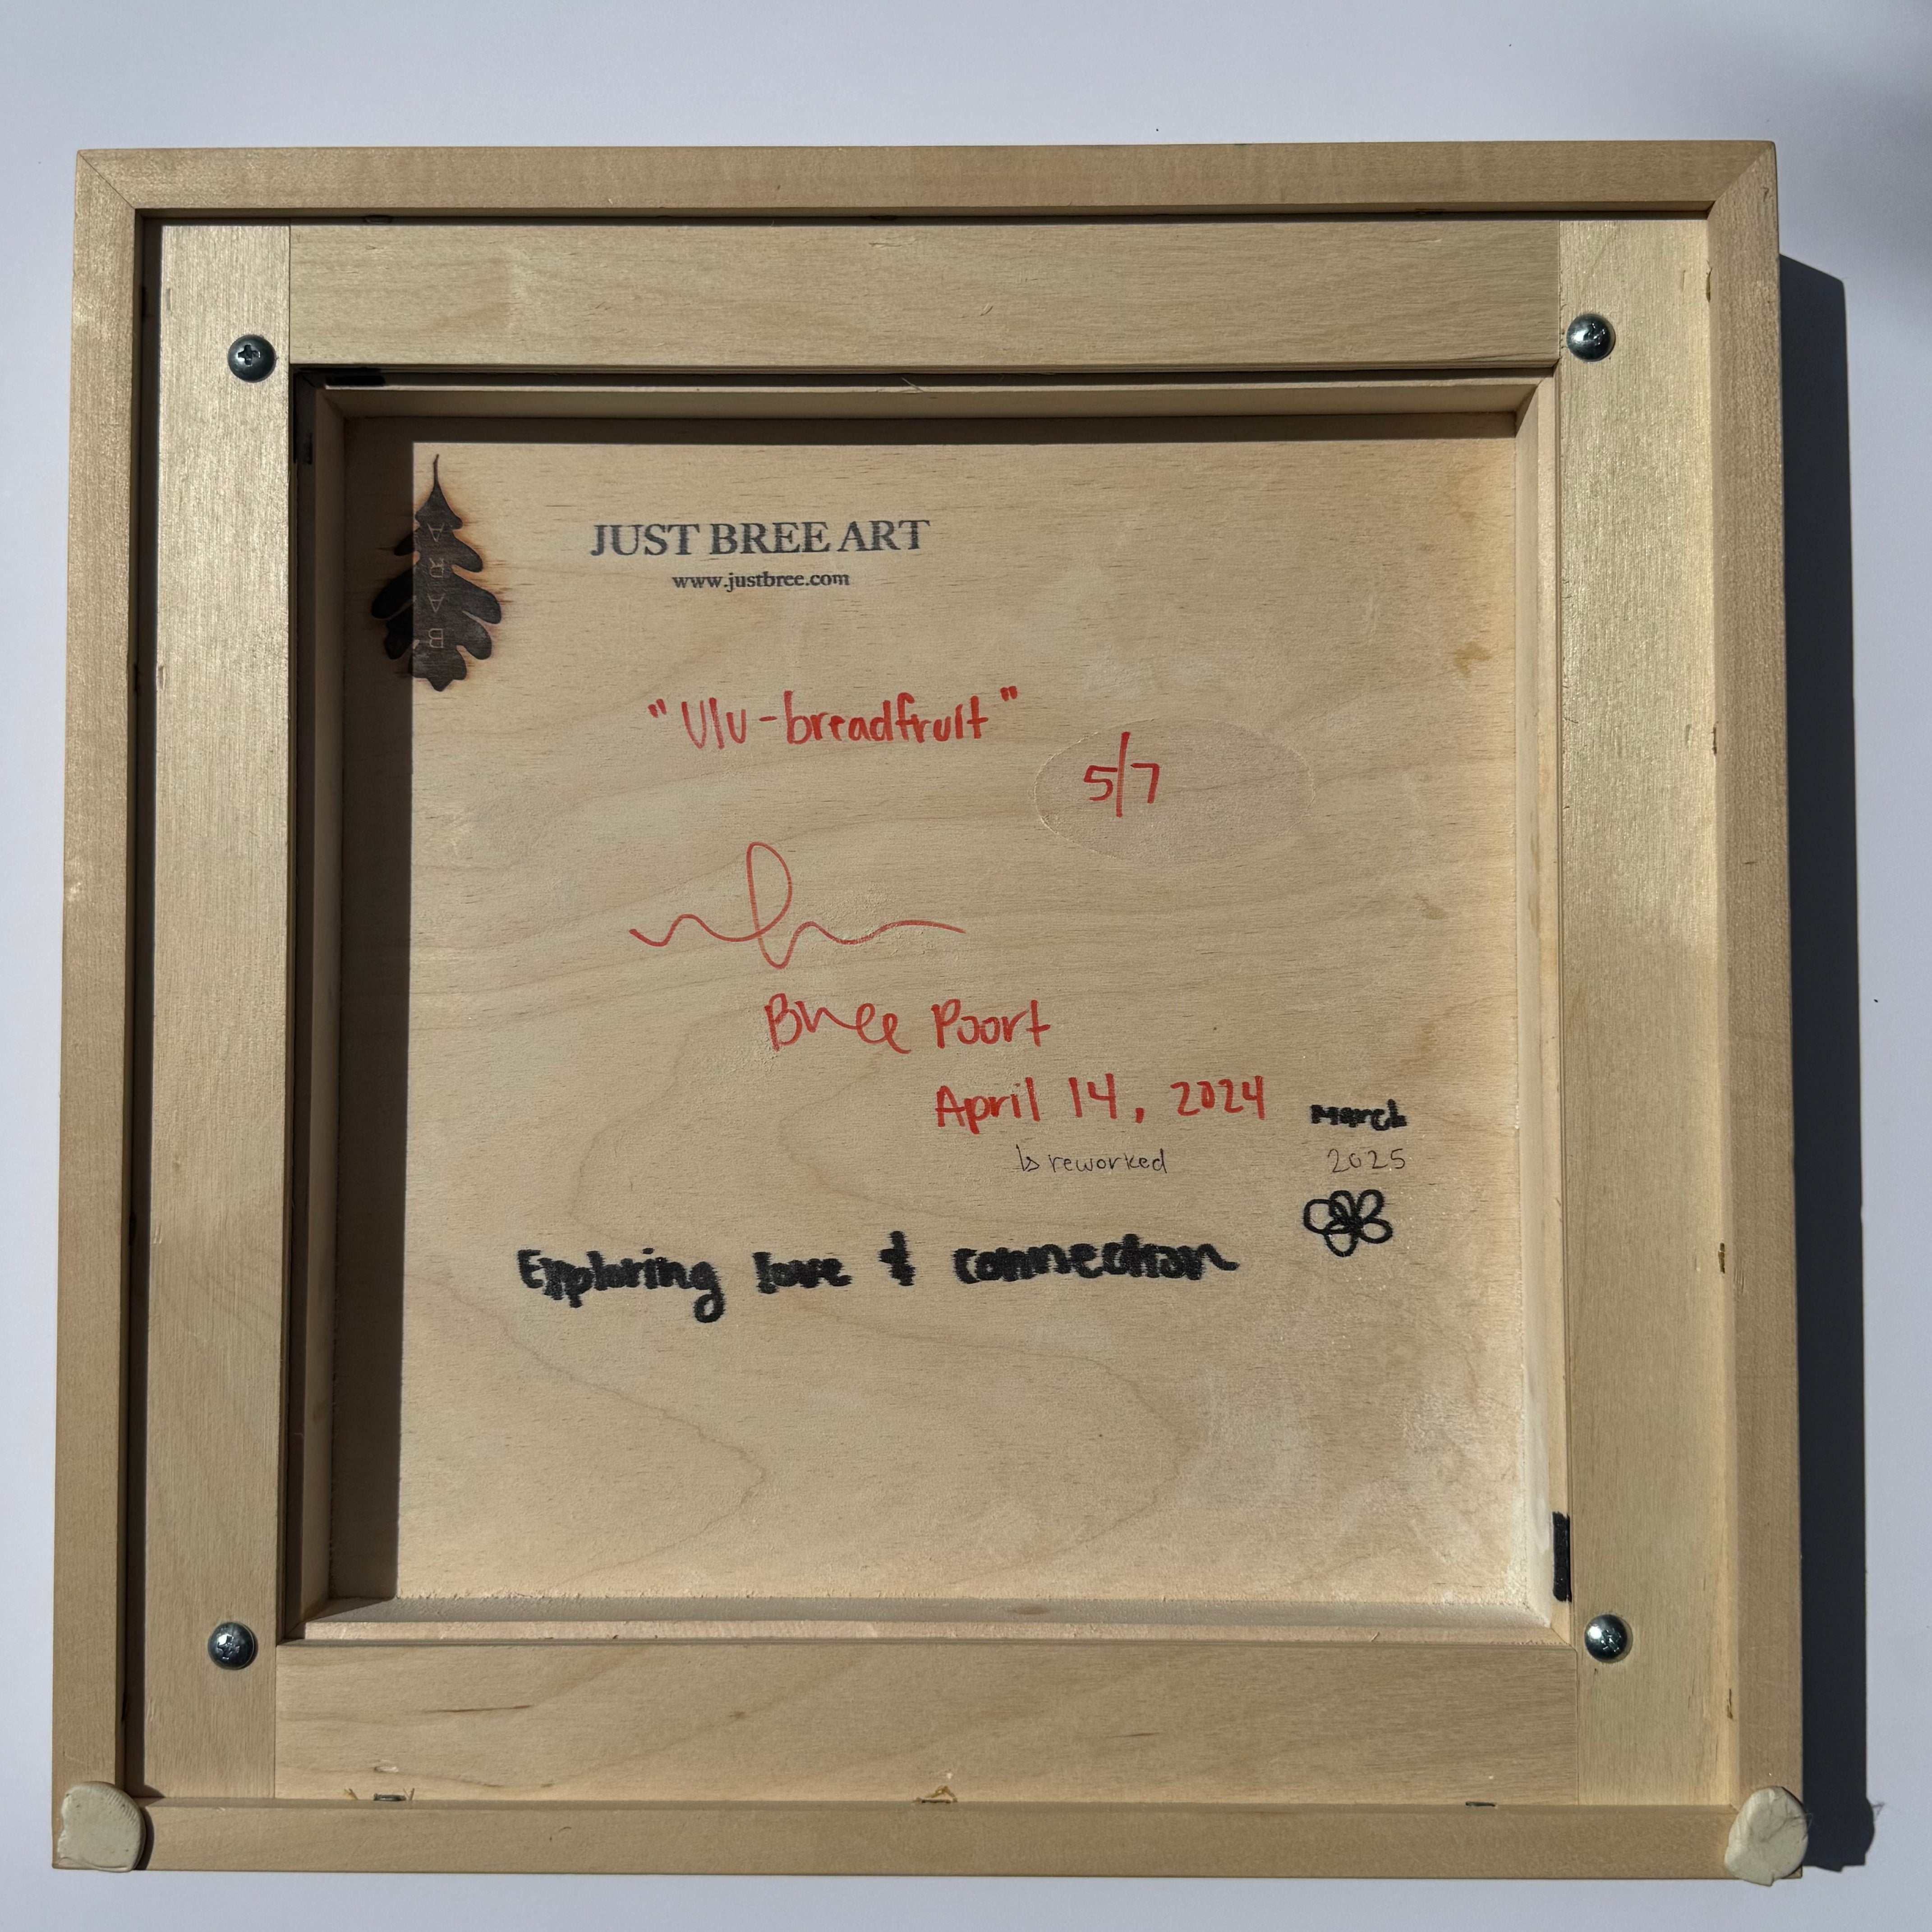 BARA
JUST BREE ART
www.justbree.com
"Ulu-breadfruit"
5/7
Bree Poort
April 14, 2024
↳ reworked
March
2025
Exploring love & connection